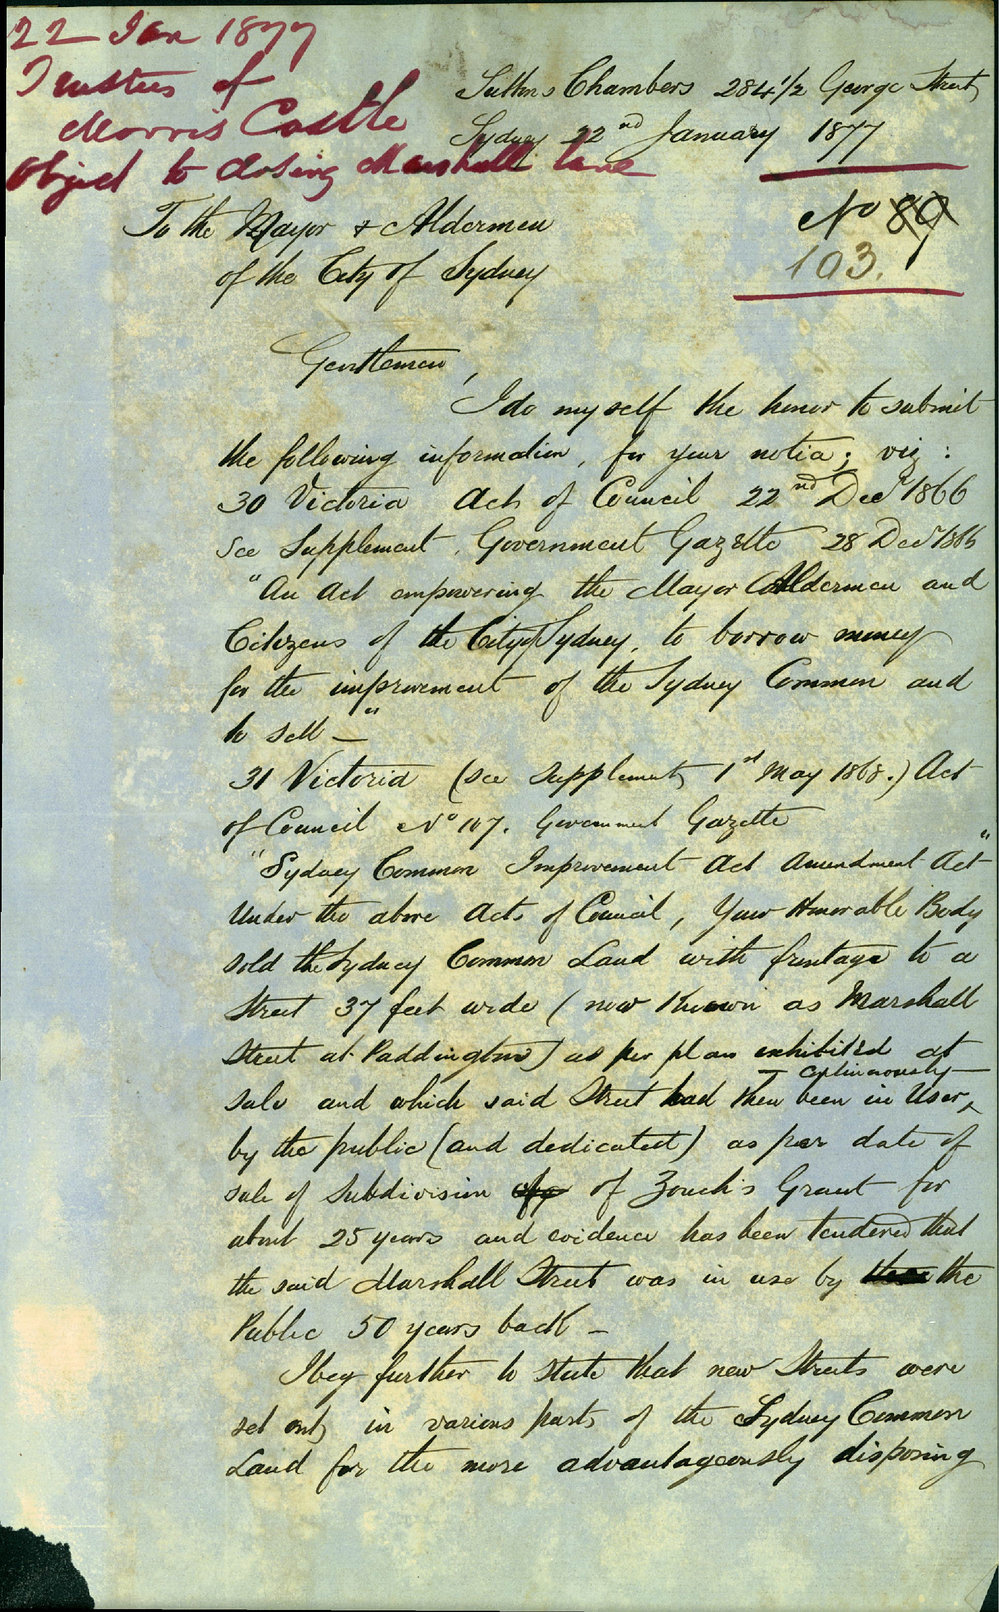 22 Jan 1877
Trustees of
Morris Castle
object to closing Marshall Lane
Chambers 284 1/2 George Street
Sydney 22nd January 1877
No 89
103.
To the Mayor & Aldermen
of the City of Sydney
Gentlemen,
I do myself the honor to submit
the following information, for your notice; viz:
30 Victoria Acts of Council 22nd Decr 1866
See Supplement, Government Gazette 28 Decr 1866
"An Act empowering the Mayor Aldermen and
Citizens of the City of Sydney, to borrow money
for the improvement of the Sydney Common and
to sell —"
31 Victoria (see Supplement, 1st May 1868.) Act
of Council No 107. Government Gazette
"Sydney Common Improvement Act Amendment Act"
Under the above Acts of Council, Your Honorable Body
sold the Sydney Common Land with frontage to a
Street 37 feet wide (now Known as Marshall
Street at Paddington) as per plan exhibited at
sale and which said Street had then been in User, continuously
by the public (and dedicated) as per date of
sale of Subdivision of Zouch's Grant for
about 25 years and evidence has been tendered that
the said Marshall Street was in use by the
Public 50 years back —
I beg further to state that new Streets were
set out, in various parts of the Sydney Common
Land for the more advantageously disposing